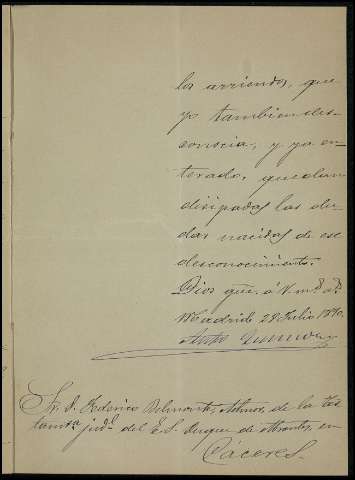 los arriendos, que
yo tambien des-
conocia, y ya en-
terado, quedan
disipadas las du-
das nacidas de ese
desconocimiento.
Dios gue. á V. m.s a.s
Madrid 28 Julio 1890.
Anto
Sr. D. Federico Belmonte, Admor. de la tes
tamta. judl. del E. S. Duque de Abrantes, en
Cáceres.